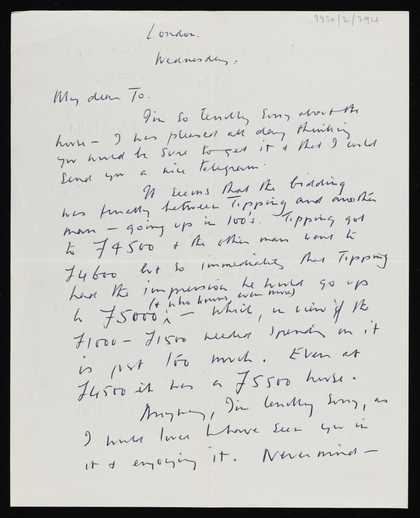 London.
Wednesday.
My dear Jo.
I'm so terribly sorry about the
house – I was pleased all day thinking
you would be sure to get it & that I could
send you a nice telegram.
It seems that the bidding
was finally between Tipping and another
man – going up in 100's. Tipping got
to £4500 & the other man went to
£4600 but so immediately that Tipping
had the impression he would go up
to £5000 (& who knows even more) – which, in view of the
£1000 – £1500 needed spending on it
is just too much. Even at
£4500 it was a £5500 house.
Anyway, I'm terribly sorry, as
I would love to have seen you in
it & enjoying it. Nevermind –